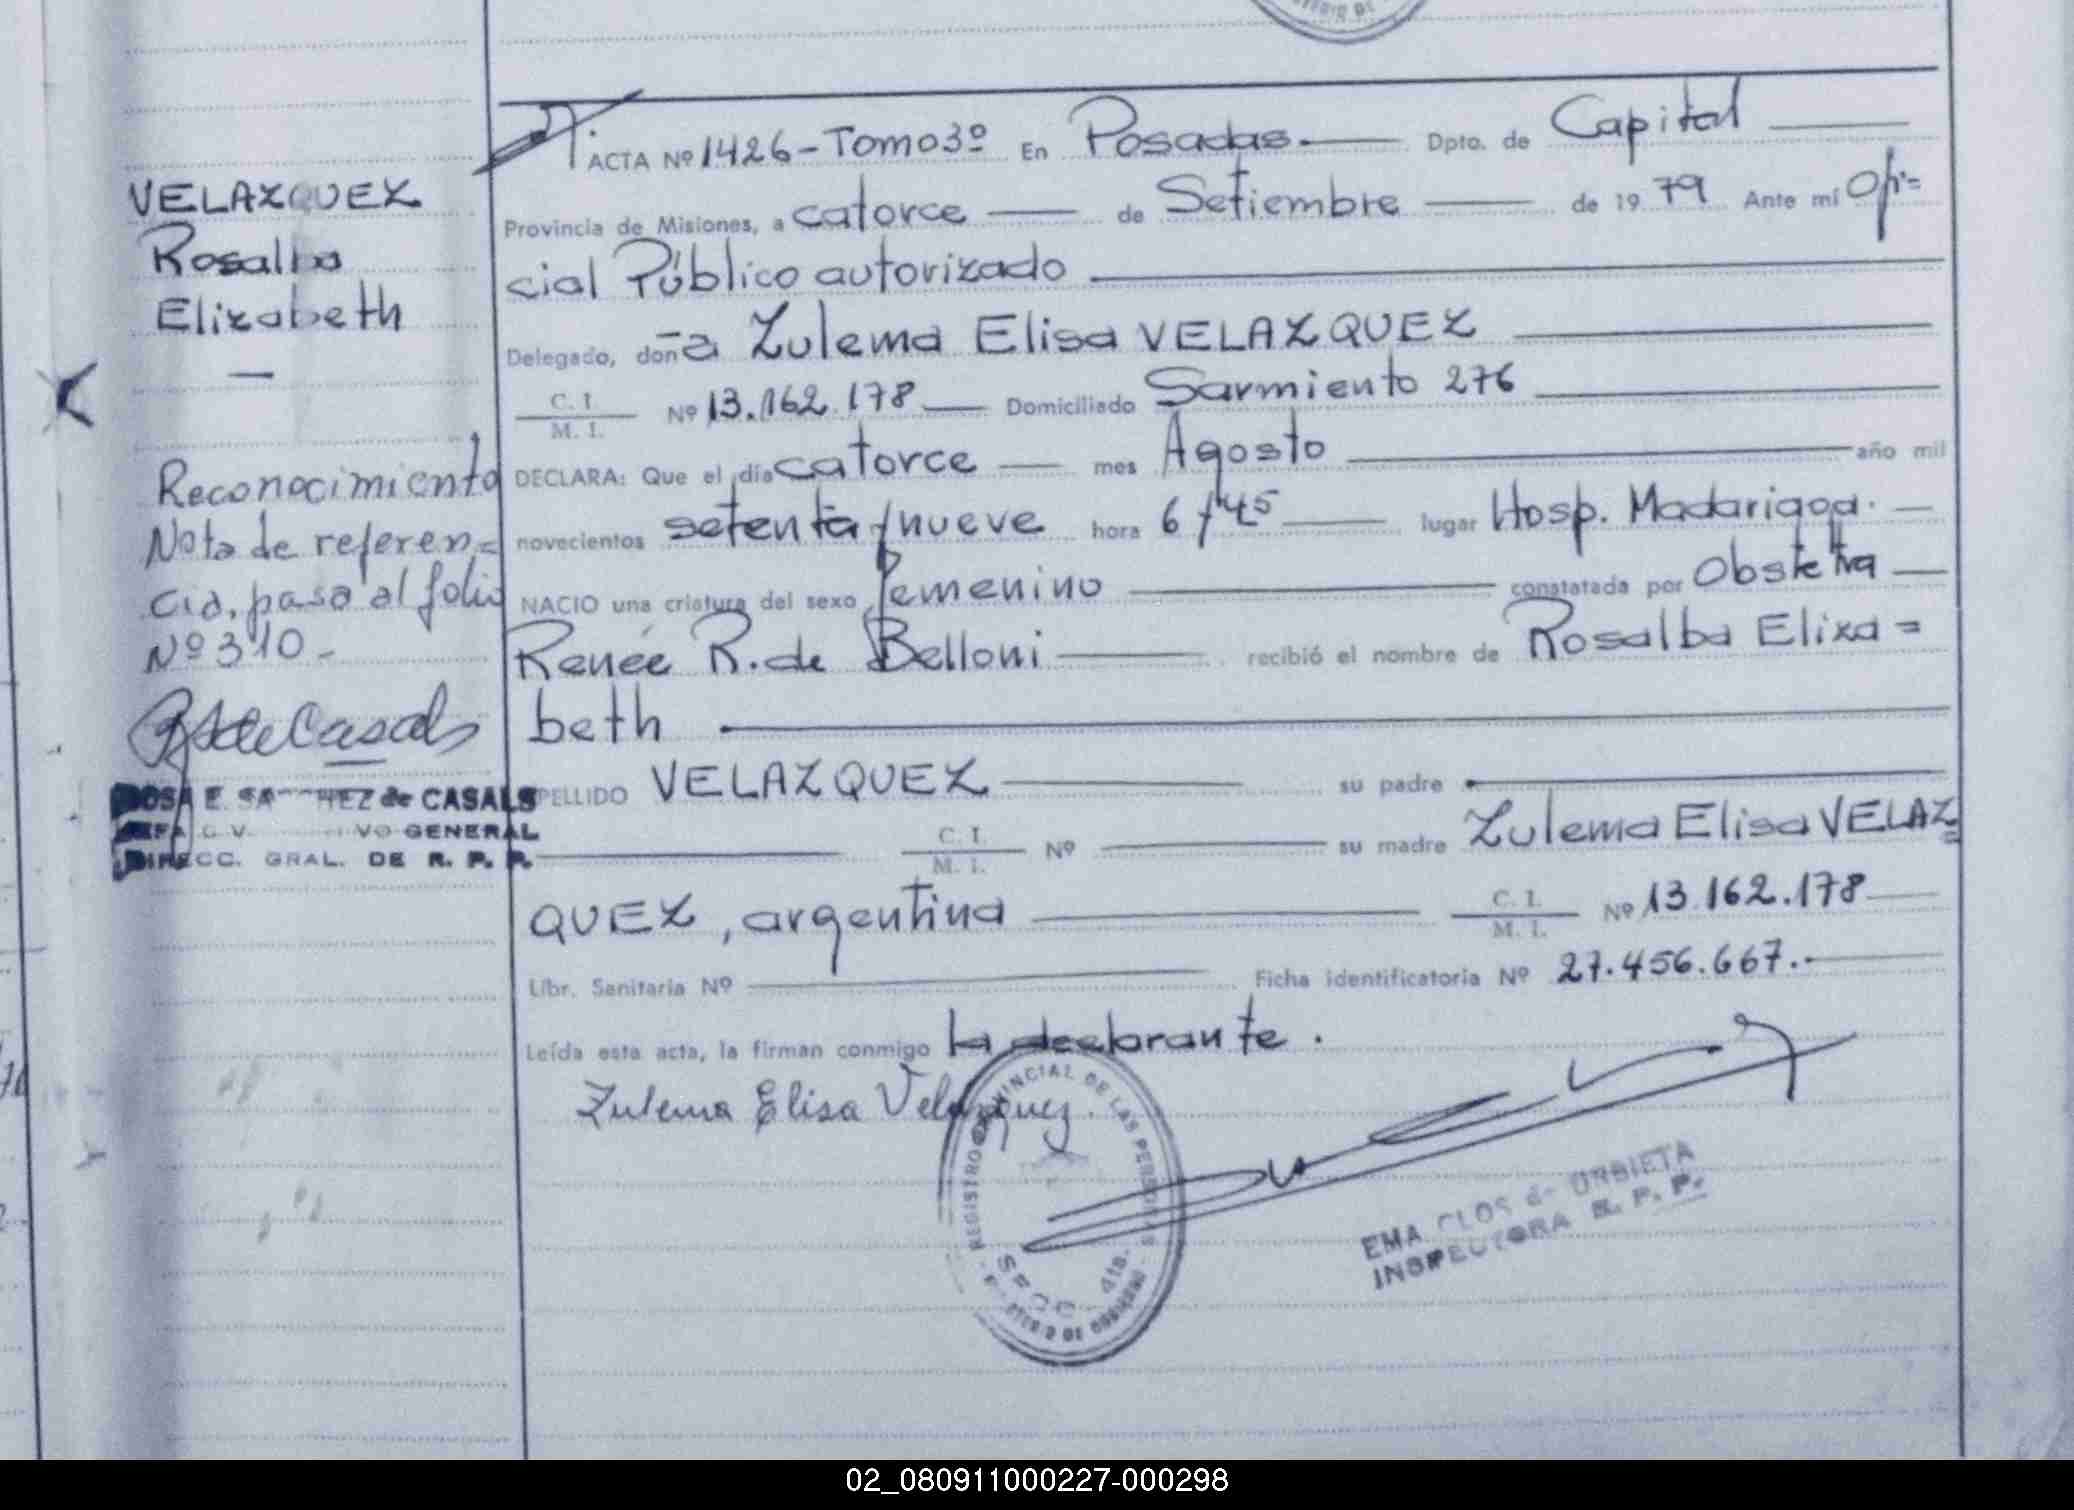 ACTA Nº 1426-Tomo 3º En Posadas. Dpto. de Capital
Provincia de Misiones, a catorce de Setiembre de 1979 Ante mí Ofi=
cial Público autorizado
Delegado, doña Zulema Elisa VELAZQUEZ
C. I. / M. I. Nº 13.162.178 Domiciliado Sarmiento 276
DECLARA: Que el día catorce mes Agosto año mil
novecientos setenta/nueve hora 6/45 lugar Hosp. Madariaga.
NACIO una criatura del sexo femenino constatada por Obstetra
Renée R. de Belloni recibió el nombre de Rosalba Eliza=
beth
APELLIDO VELAZQUEZ su padre
C. I. / M. I. Nº su madre Zulema Elisa VELAZ=
QUEZ, argentina C. I. / M. I. Nº 13.162.178
Libr. Sanitaria Nº Ficha identificatoria Nº 27.456.667.-
Leída esta acta, la firman conmigo la declarante.
Zulema Elisa Velazquez.
REGISTRO PROVINCIAL DE LAS PERSONAS
EMA CLOS de URBIETA
INSPECTORA R. P. P.
VELAZQUEZ
Rosalba
Elizabeth
Reconocimiento
Nota de referen=
cia, pasa al folio
Nº 310-
de Casals
ROSA E. SA HEZ de CASALS
VO GENERAL
DIRECC. GRAL. DE R. P. P.
02_080911000227-000298